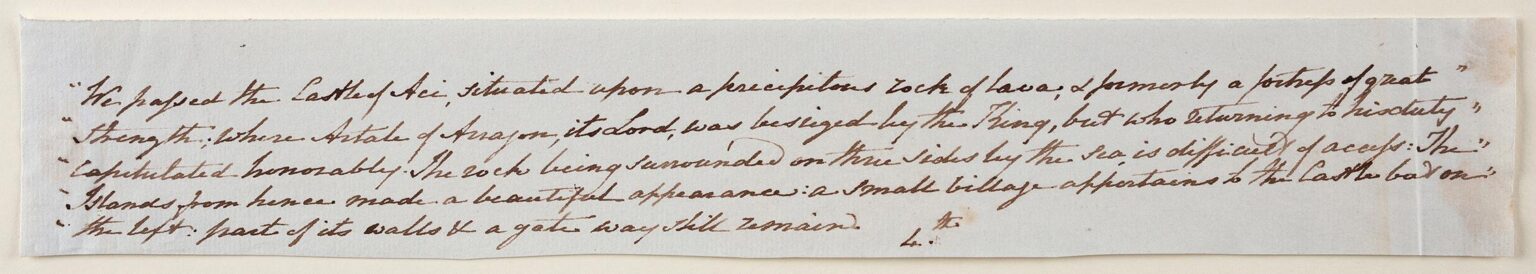 "We passed the Castle of Aci, situated upon a precipitous rock of Lava, & formerly a fortress of great "
"strength; where Artale of Arragon, its Lord, was besieged by the King, but who returning to his duty "
"capitulated honorably. The rock being surrounded on three sides by the sea, is difficult of access: The "
"Islands from hence made a beautiful appearance: a small village appertains to the Castle but on "
"the left: part of its walls & a gate way still remain 4.th